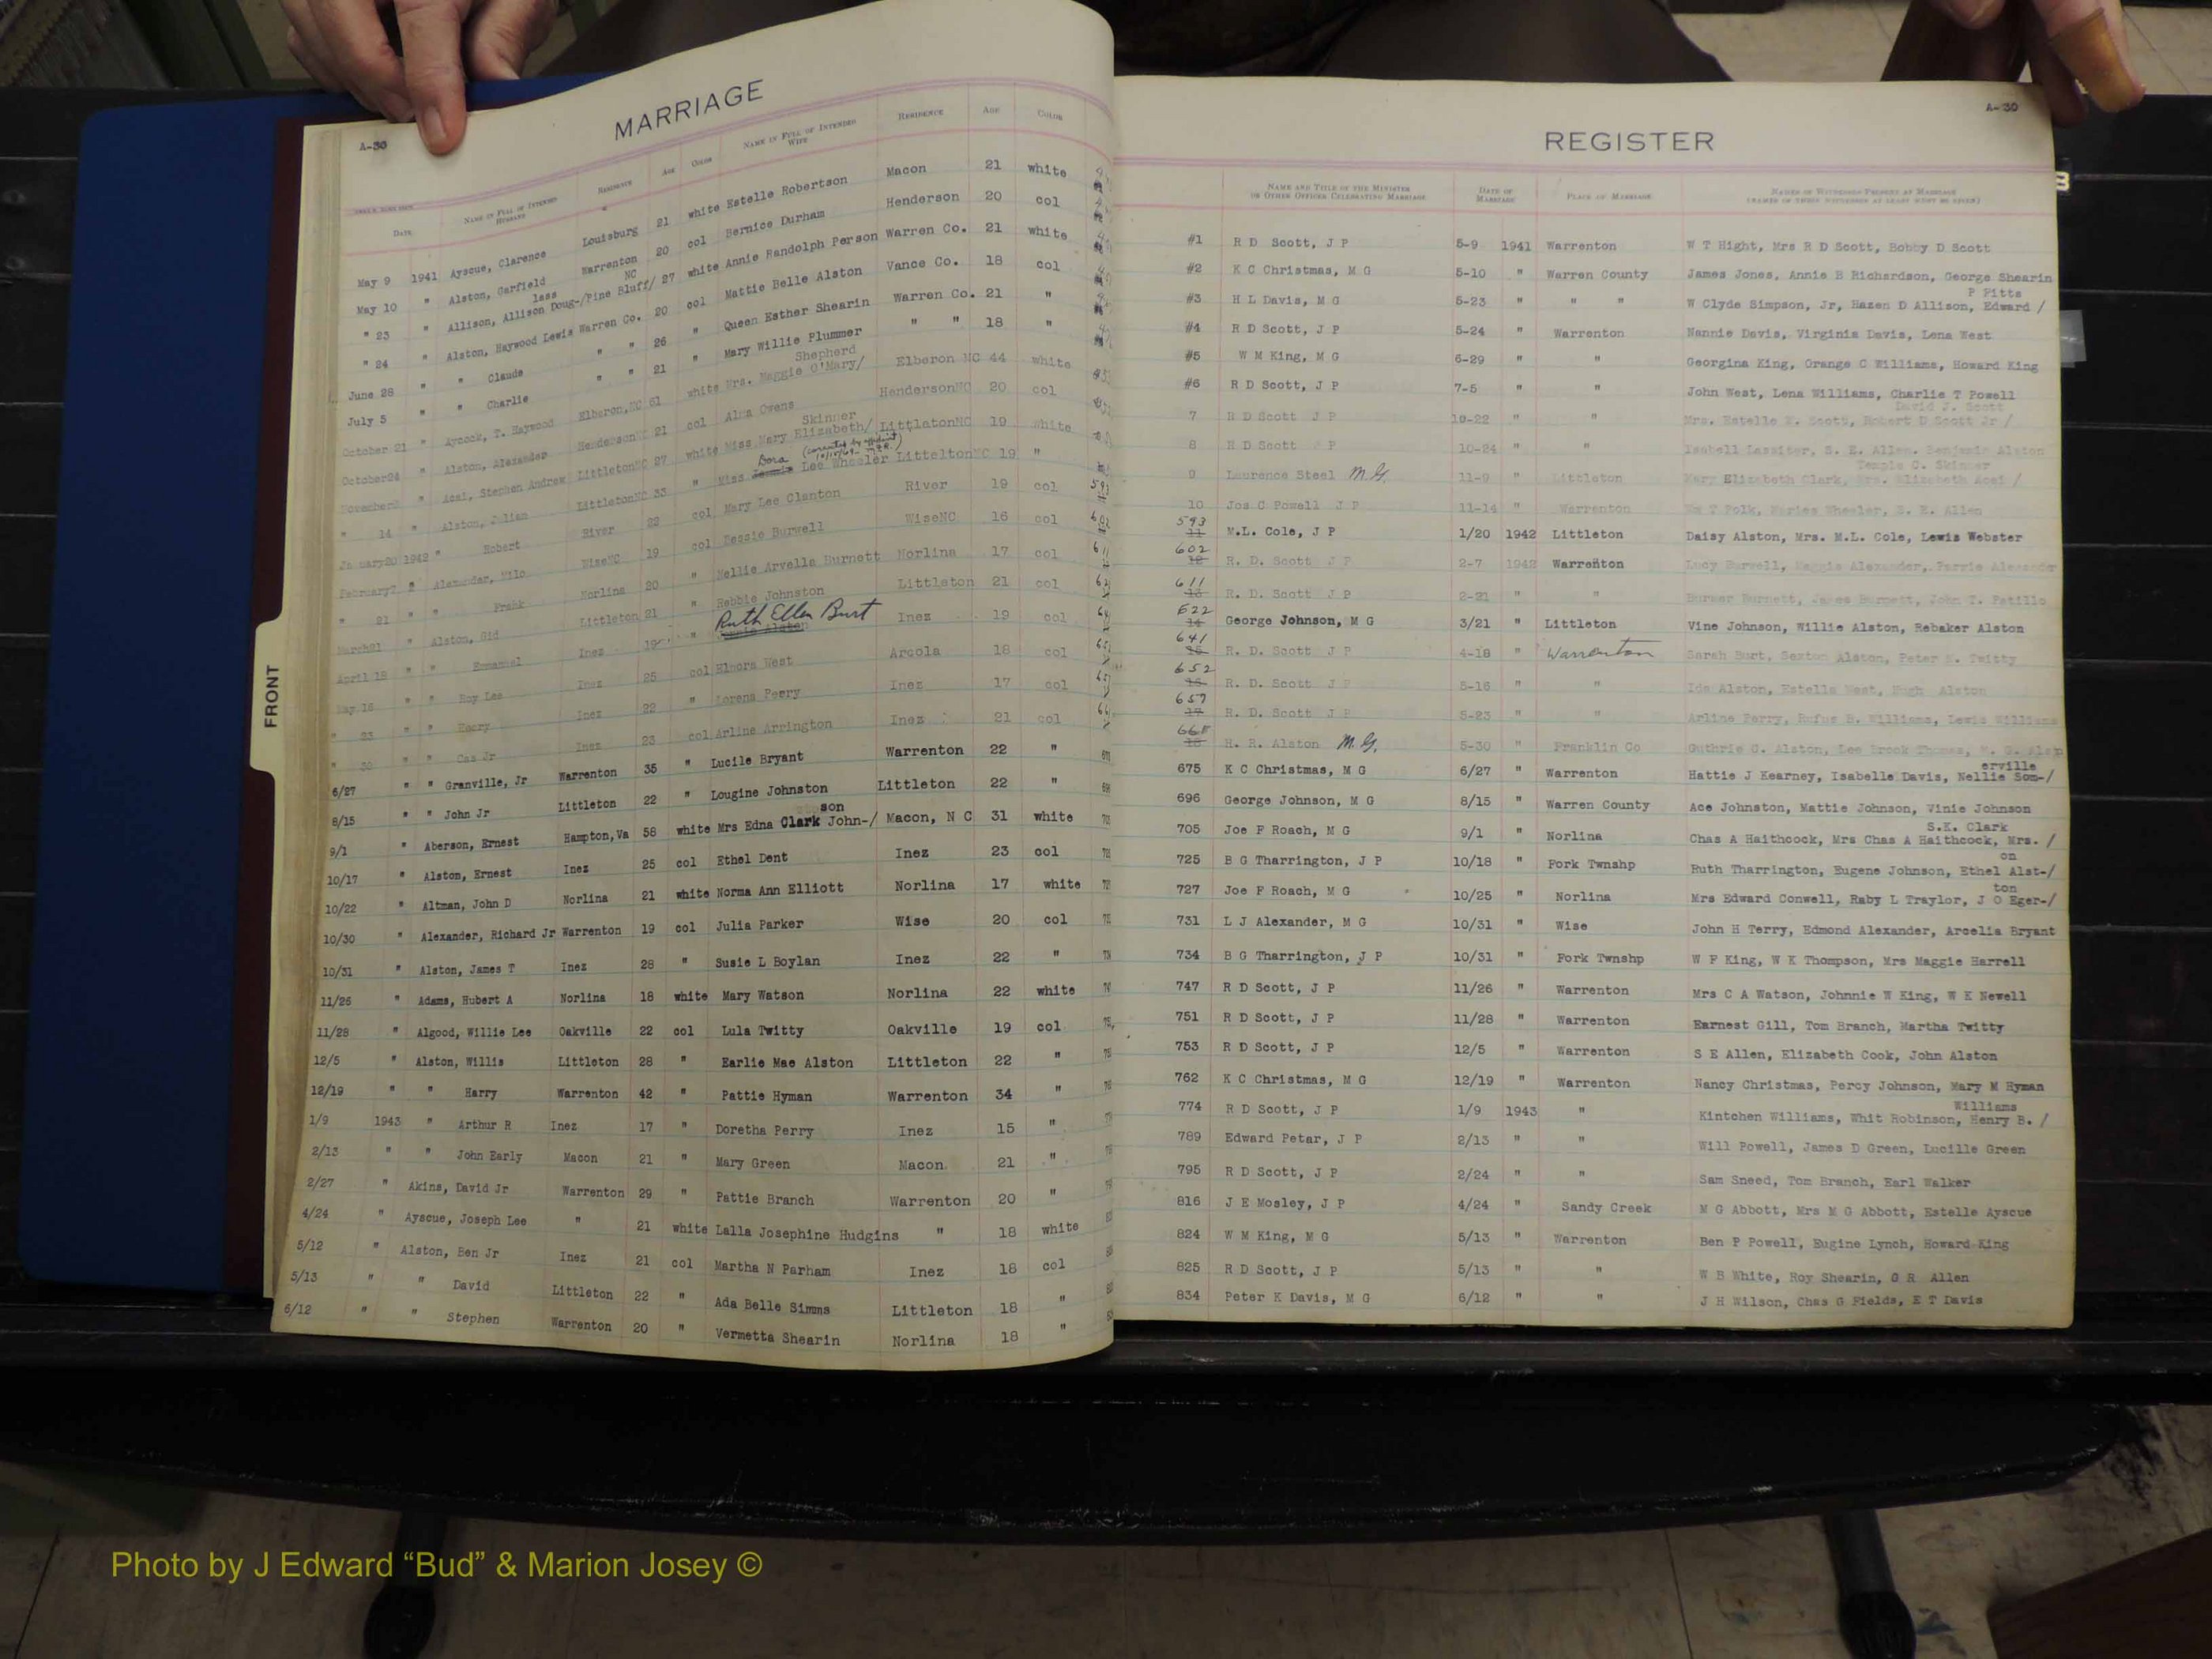 A-30
MARRIAGE
Date
NAME IN FULL OF INTENDED HUSBAND
RESIDENCE
AGE
COLOR
NAME IN FULL OF INTENDED WIFE
RESIDENCE
AGE
COLOR
May 9 1941 Ayscue, Clarence Louisburg 21 white Estelle Robertson Macon 21 white
May 10 " Alston, Garfield Warrenton 20 col Bernice Durham Henderson 20 col
lass NC
" 23 " Allison, Allison Doug-/Pine Bluff/ 27 white Annie Randolph Person Warren Co. 21 white
" 24 " Alston, Haywood Lewis Warren Co. 20 col Mattie Belle Alston Vance Co. 18 col
June 28 " " Claude " " 26 " Queen Esther Shearin Warren Co. 21 "
July 5 " " Charlie " " 21 " Mary Willie Plummer " " 18 "
Shepherd
October 21 " Aycock, T. Haywood Elberon, NC 61 white Mrs. Maggie O'Mary/ Elberon NC 44 white
October24 " Alston, Alexander HendersonNC 21 col Alma Owens HendersonNC 20 col
Skinner
November8 " Acai, Stephen Andrew LittletonNC 27 white Miss Mary Elizabeth/ LittletonNC 19 white
Dora
" 14 " Alston, Julian LittletonNC 33 " Miss Lee Wheeler LitteltonNC 19 "
January20 1942 " Robert River 22 col Mary Lee Clanton River 19 col
February7 " Alexander, Milo WiseNC 19 col Bessie Burwell WiseNC 16 col
" 21 " " Frank Norlina 20 " Nellie Arvella Burnett Norlina 17 col
March21 " Alston, Sid Littleton 21 " Rebbie Johnston Littleton 21 col
April 18 " " Emmanuel Inez 19 " Ruth Ellen Burt Inez 19 col
May 16 " " Roy Lee Inez 25 col Elnora West Arcola 18 col
" 23 " " Emory Inez 22 " Lorena Perry Inez 17 col
" 30 " " Cas Jr Inez 23 col Arline Arrington Inez 21 col
6/27 " " Granville, Jr Warrenton 35 " Lucile Bryant Warrenton 22 "
8/15 " " John Jr Littleton 22 " Lougine Johnston Littleton 22 "
son
9/1 " Aberson, Ernest Hampton,Va 58 white Mrs Edna Clark John-/ Macon, N C 31 white
10/17 " Alston, Ernest Inez 25 col Ethel Dent Inez 23 col
10/22 " Altman, John D Norlina 21 white Norma Ann Elliott Norlina 17 white
10/30 " Alexander, Richard Jr Warrenton 19 col Julia Parker Wise 20 col
10/31 " Alston, James T Inez 28 " Susie L Boylan Inez 22 "
11/26 " Adams, Hubert A Norlina 18 white Mary Watson Norlina 22 white
11/28 " Algood, Willie Lee Oakville 22 col Lula Twitty Oakville 19 col
12/5 " Alston, Willis Littleton 28 " Earlie Mae Alston Littleton 22 "
12/19 " " Harry Warrenton 42 " Pattie Hyman Warrenton 34 "
1/9 1943 " Arthur R Inez 17 " Doretha Perry Inez 15 "
2/13 " " John Early Macon 21 " Mary Green Macon 21 "
2/27 " Akins, David Jr Warrenton 29 " Pattie Branch Warrenton 20 "
4/24 " Ayscue, Joseph Lee " 21 white Lalla Josephine Hudgins " 18 white
5/12 " Alston, Ben Jr Inez 21 col Martha N Parham Inez 18 col
5/13 " " David Littleton 22 " Ada Belle Simms Littleton 18 "
6/12 " " Stephen Warrenton 20 " Vermetta Shearin Norlina 18 "
FRONT
A-30
REGISTER
NAME AND TITLE OF THE MINISTER OR OTHER OFFICER CELEBRATING MARRIAGE
DATE OF MARRIAGE
PLACE OF MARRIAGE
NAMES OF WITNESSES PRESENT AT MARRIAGE
(NAMES OF THREE WITNESSES AT LEAST MUST BE GIVEN)
#1 R D Scott, J P 5-9 1941 Warrenton W T Hight, Mrs R D Scott, Bobby D Scott
#2 K C Christmas, M G 5-10 " Warren County James Jones, Annie B Richardson, George Shearin
P Pitts
#3 H L Davis, M G 5-23 " " " W Clyde Simpson, Jr, Hazen D Allison, Edward /
#4 R D Scott, J P 5-24 " Warrenton Nannie Davis, Virginia Davis, Lena West
#5 W M King, M G 6-29 " " Georgina King, Grange C Williams, Howard King
#6 R D Scott, J P 7-5 " " John West, Lena Williams, Charlie T Powell
David J. Scott
7 R D Scott J P 10-22 " " Mrs. Estelle W. Scott, Robert D Scott Jr /
8 R D Scott P 10-24 " " Isabell Lassiter, S. E. Allen. Benjamin Alston
Temple O. Skinner
9 Laurence Steel M.G. 11-9 " Littleton Mary Elizabeth Clark, Mrs. Elizabeth Acai /
10 Jos C Powell J P 11-14 " Warrenton Wm T Polk, Maries Wheeler, S. E. Allen
593 11 M.L. Cole, J P 1/20 1942 Littleton Daisy Alston, Mrs. M.L. Cole, Lewis Webster
602 12 R. D. Scott J P 2-7 1942 Warrenton Lucy Burwell, Maggie Alexander, Parrie Alexander
611 13 R. D. Scott J P 2-21 " " Burmer Burnett, James Burnett, John T. Patillo
622 14 George Johnson, M G 3/21 " Littleton Vine Johnson, Willie Alston, Rebaker Alston
641 15 R. D. Scott J P 4-18 " Warrenton Sarah Burt, Sexton Alston, Peter M. Twitty
652 16 R. D. Scott J P 5-16 " " Ida Alston, Estelle West, Hugh Alston
657 17 R. D. Scott J P 5-23 " " Arline Perry, Rufus B. Williams, Lewis Williams
668 18 H. R. Alston M.G. 5-30 " Franklin Co Guthrie C. Alston, Lee Brook Thomas,
erville
675 K C Christmas, M G 6/27 " Warrenton Hattie J Kearney, Isabelle Davis, Nellie Som-/
696 George Johnson, M G 8/15 " Warren County Ace Johnston, Mattie Johnson, Vinie Johnson
S.K. Clark
705 Joe F Roach, M G 9/1 " Norlina Chas A Haithcock, Mrs Chas A Haithcock, Mrs. /
on
725 B G Tharrington, J P 10/18 " Fork Twnshp Ruth Tharrington, Eugene Johnson, Ethel Alst-/
ton
727 Joe F Roach, M G 10/25 " Norlina Mrs Edward Conwell, Raby L Traylor, J O Eger-/
731 L J Alexander, M G 10/31 " Wise John H Terry, Edmond Alexander, Arcelia Bryant
734 B G Tharrington, J P 10/31 " Fork Twnshp W F King, W K Thompson, Mrs Maggie Harrell
747 R D Scott, J P 11/26 " Warrenton Mrs C A Watson, Johnnie W King, W K Newell
751 R D Scott, J P 11/28 " Warrenton Earnest Gill, Tom Branch, Martha Twitty
753 R D Scott, J P 12/5 " Warrenton S E Allen, Elizabeth Cook, John Alston
762 K C Christmas, M G 12/19 " Warrenton Nancy Christmas, Percy Johnson, Mary M Hyman
Williams
774 R D Scott, J P 1/9 1943 " Kintchen Williams, Whit Robinson, Henry B. /
789 Edward Petar, J P 2/13 " " Will Powell, James D Green, Lucille Green
795 R D Scott, J P 2/24 " " Sam Sneed, Tom Branch, Earl Walker
816 J E Mosley, J P 4/24 " Sandy Creek M G Abbott, Mrs M G Abbott, Estelle Ayscue
824 W M King, M G 5/13 " Warrenton Ben P Powell, Eugine Lynch, Howard King
825 R D Scott, J P 5/13 " " W B White, Roy Shearin, G R Allen
834 Peter K Davis, M G 6/12 " " J H Wilson, Chas G Fields, E T Davis
Photo by J Edward “Bud” & Marion Josey ©